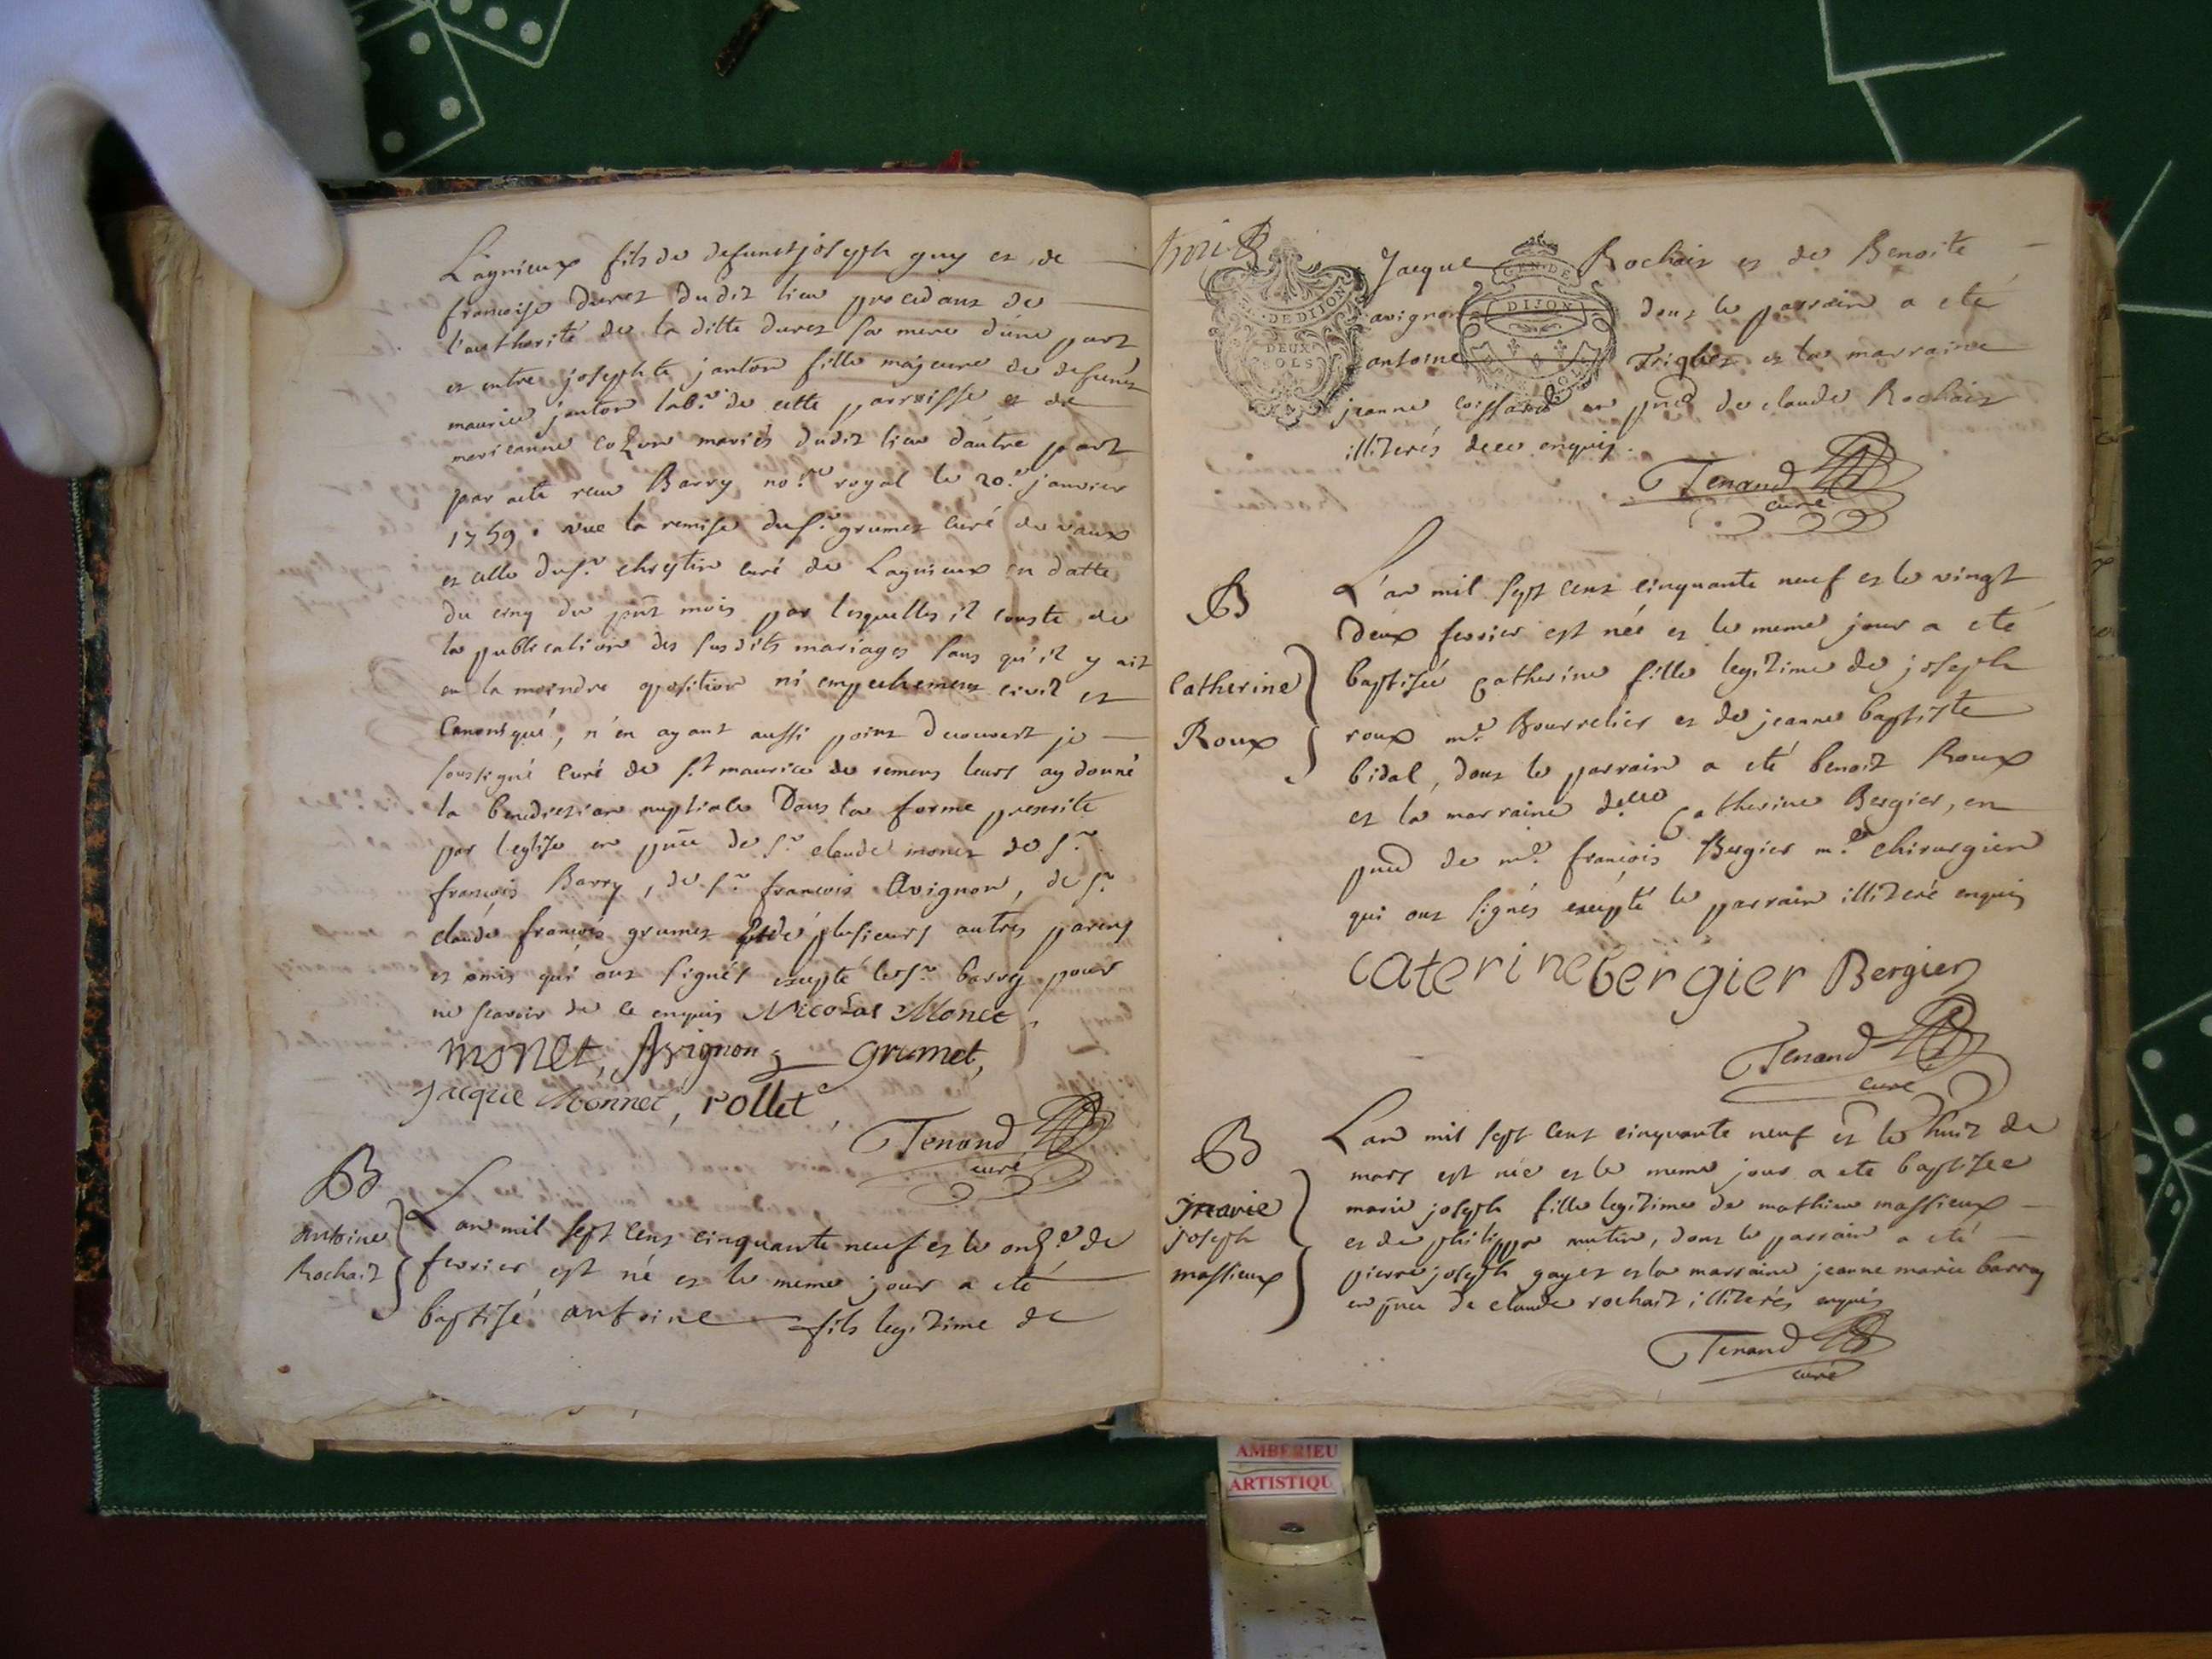 Lagnieux fils de defunct joseph guy et de
francoise Duret dudit lieu procedant de
l'authorité de la ditte duret sa mere d'une part
et entre josephte janton fille majeure de defunct
maurice janton lab.r de cette parroisse et de
marieanne mariés dudit lieu d'autre part
par acte receu Barry no.re royal le 20.e janvier
1759. vue la remise du s.r grumet curé de vaux
et celle du s.r chrystin curé de Lagnieux en datte
du cinq du pnt mois par lesquelles il conste de
la publication des susdits mariages sans qu'il y ait
eu la moindre oposition ni empechement civil et
Canonique, n'en ayant aussi point decouvert je
soussigné Curé de s.t maurice de remens leurs ay donné
la benediction nuptiale Dans la forme prescrite
par l'eglise en pnce de s.r claude monet de s.r
francois Barry, de s.r francois Avignon, de s.r
claude francois grumet et de plusieurs autres parens
et amis qui ont signés excepté le s.r barry pour
ne scavoir de ce enquis Nicolas Monet,
monet, Avignon, grumet,
jacque Monnet, rollet,
Tenand
curé
B
antoine
Rochait
L'an mil sept cent cinquante neuf et le onz.e de
fevrier est né et le meme jour a eté
baptisé antoine fils legitime de
GEN. DE
DIJON
DE DIJON
DEUX
SOLS
Jacque Rochait et de Benoite
avignon dont le parrain a eté
antoine Triglet et la marraine
jeanne en pnce de claude Rochait
illiterés de ce enquis.
Tenand
curé
B
Catherine
Roux
L'an mil sept cent cinquante neuf et le vingt
deux fevrier est née et le meme jour a eté
baptisée catherine fille legitime de joseph
roux m.e Bourrelier et de jeanne baptiste
bidal, dont le parrain a eté benoit Roux
et la marraine d.elle Catherine Bergier, en
pnce de m.e francois Bergier m.e chirurgien
qui ont signés excepté le parrain illiteré enquis
caterine bergier Bergier
Tenand
curé
B
marie
joseph
massieux
L'an mil sept cent cinquante neuf et le huit de
mars est née et le meme jour a eté baptisée
marie joseph fille legitime de mathieu massieux
et de philippa mutin, dont le parrain a eté
pierre joseph gayet et la marraine jeanne marie barry
en pnce de claude rochait illiterés enquis
Tenand
curé
AMBERIEU
ARTISTIQU